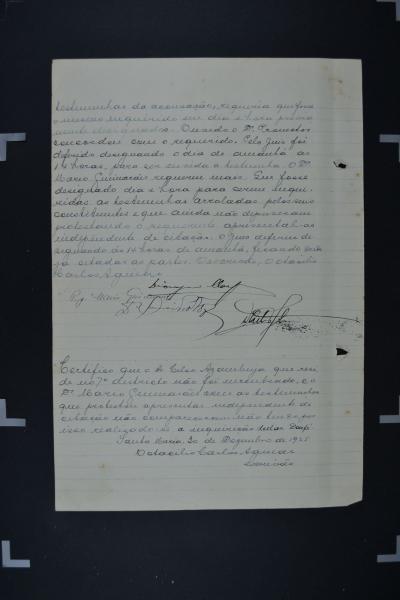 testemunhas da accusação, requeria que fosse
o mesmo inquirido em dia e hora previa
mente designados. Ouvido o Dr. Promotor
concordou com o requerido. Pelo Juiz foi
deferido designando o dia de amanhã as
14 horas, para ser ouvida a testemunha. O Dr.
Mario Guimarães requereu mais. Que fosse
designado dia e hora para serem inqui-
ridas as testemunhas arroladas pelos seus
constituintes e que ainda não depuzeram
protestando o requerente apresental-as
independente de citação. O Juiz deferiu de
signando as 14 horas de amanhã, ficando
já citadas as partes. O escrivão, Octacilio
Carlos Aguiar
Mario Guimarães
Certifico que o Sr. Celso Azambuja que resi
de no 7º districto não foi encontrado, e o
Dr. Mario Guimarães assim as testemunhas
que protestou apresentar independente de
citação não compareceram não tendo por
isso realizado-se a inquirição
Santa Maria, 20 de Dezembro de 1928
Octacilio Carlos Aguiar
Escrivão